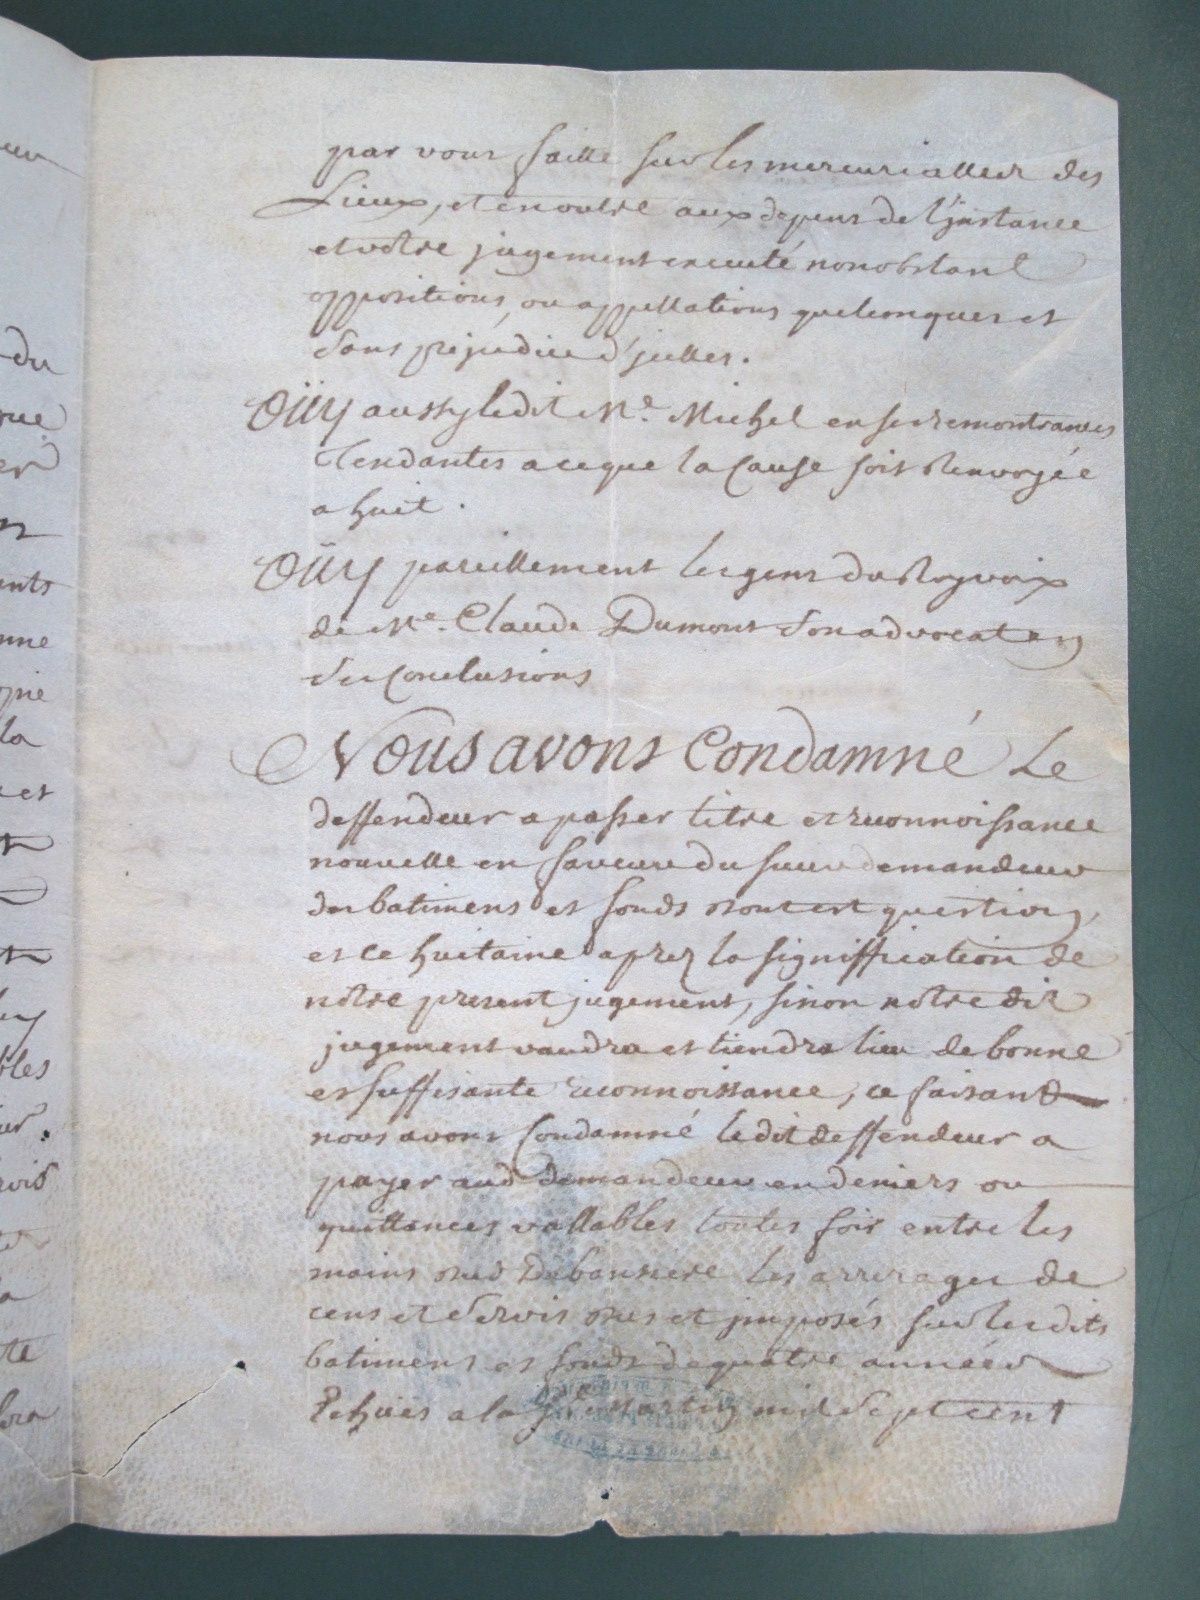 par vous faitte sur les mercurialles des
Lieux, et en outre aux depens de l'jnstance
et votre jugement executé nonobstant
oppositions, ou appellations quelconques et
sans prejudice d'jcelles.
Oüy aussy ledit Me. Michel en ses remontrances
Tendantes a ce que la Cause soit Renvoyée
a huit.
Oüy pareillement les gens du Roy voix
de Me. Claude Dumont son advocat en
ses Conclusions
Nous avons Condamné Le
deffendeur a passer titre et reconnoissance
nouvelle en faveure du sieur demandeur
des batimens et fonds dont est question,
et ce huitaine aprez la signiffication de
notre present jugement, sinon notre dit
jugement vaudra et tiendra lieu de bonne
et suffisante reconnoissance, ce faisant
nous avons Condamné ledit deffendeur a
payer aud demandeur en deniers ou
quittances vallables toutes fois entre les
mains dud les arrerages de
cens et servis dus et jmposés sur lesdits
batimens et fonds de quatre années
Echües a la St Martin mil sept cent
du
er
ants
nne
opie
la
et
bles
rvis
a
te